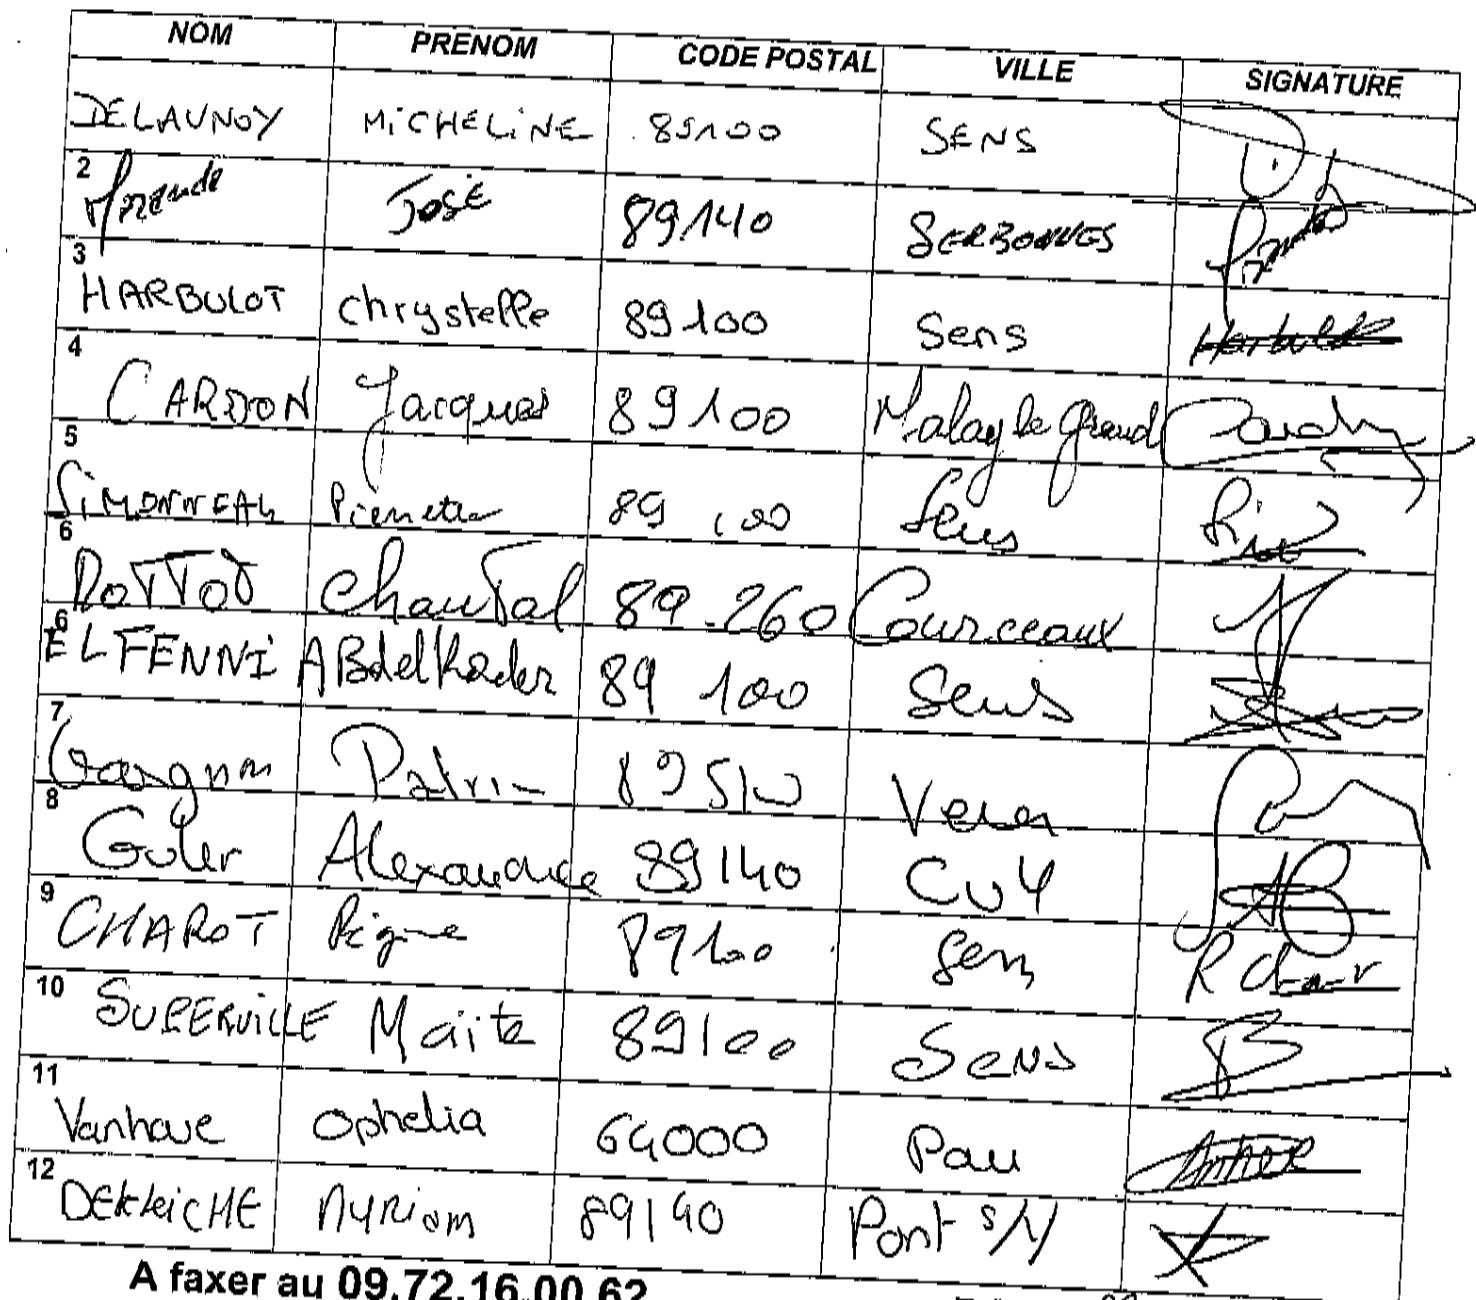 NOM PRENOM CODE POSTAL VILLE SIGNATURE
DELAUNOY MiCHELiNE 89100 SENS
2 José 89.140 SERBONNES
3 HARBULOT Chrystelle 89100 Sens
4 CARDON Jacques 89100 Malay le Grand
5 SiMONNEAU Pierrette 89 100 Sens
6 DOTTOT Chantal 89.260 Courceaux
6 EL FENNI ABdelkader 89 100 Sens
7 89510 Veron
8 Guler Alexandre 89140 CUY
9 CHAROT Régine 89100 Sens
10 SUBERVILLE Maïte 89100 Sens
11 Vanhove Ophelia 64000 Pau
12 DEKKICHE Myriam 89140 Pont s/Y
A faxer au 09.72.16.00.62